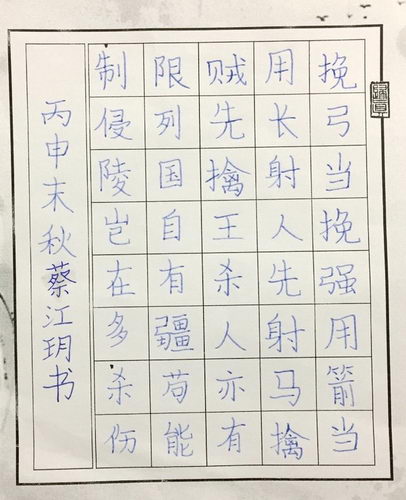 挽弓当挽强用箭当
用长射人先射马擒
贼先擒王杀人亦有
限列国自有疆苟能
制侵陵岂在多杀伤
丙申末秋蔡江玥书